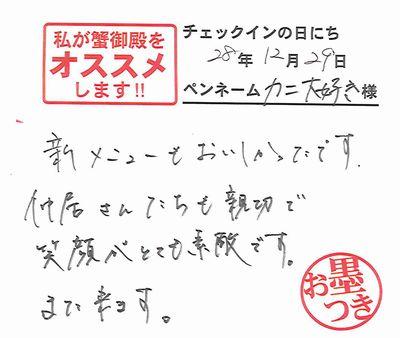 私が蟹御殿を
オススメ
します!!
チェックインの日にち
28年12月29日
ペンネーム カニ大好き様
新メニューもおいしかったです。
仲居さんたちも親切で
笑顔がとても素敵です。
また来ます。
お墨つき